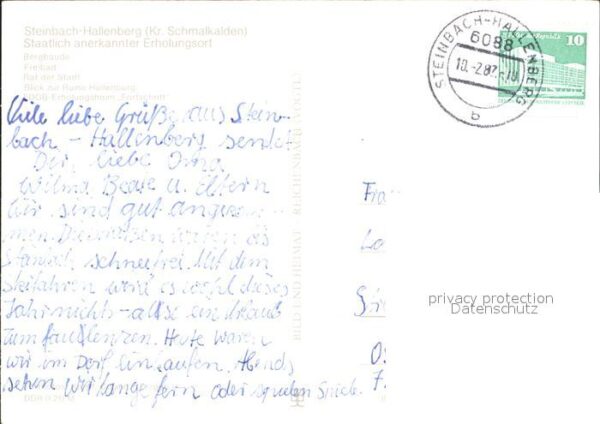 Steinbach-Hallenberg (Kr. Schmalkalden)
Staatlich anerkannter Erholungsort
Bergbaude
Freibad
Rat der Stadt
Blick zur Ruine Hallenburg
FDGB-Erholungsheim "Fortschritt"
Viele liebe Grüße aus Stein-
bach - Hallenberg sendet
Dir, liebe Oma
Wilma Beate u. Eltern
Wir sind gut angekom-
men.
schneefrei. Mit dem
Skifahren wird es wohl dieses
Jahr nichts - also ein Urlaub
zum faulenzen. Heute waren
wir im Dorf einkaufen. Abends
sehen wir lange fern oder spielen Spiele.
BILD UND HEIMAT REICHENBACH
STEINBACH-HALLENBERG
6088
10.-2.87
b
10
Fra
La
O
F.
privacy protection
Datenschutz